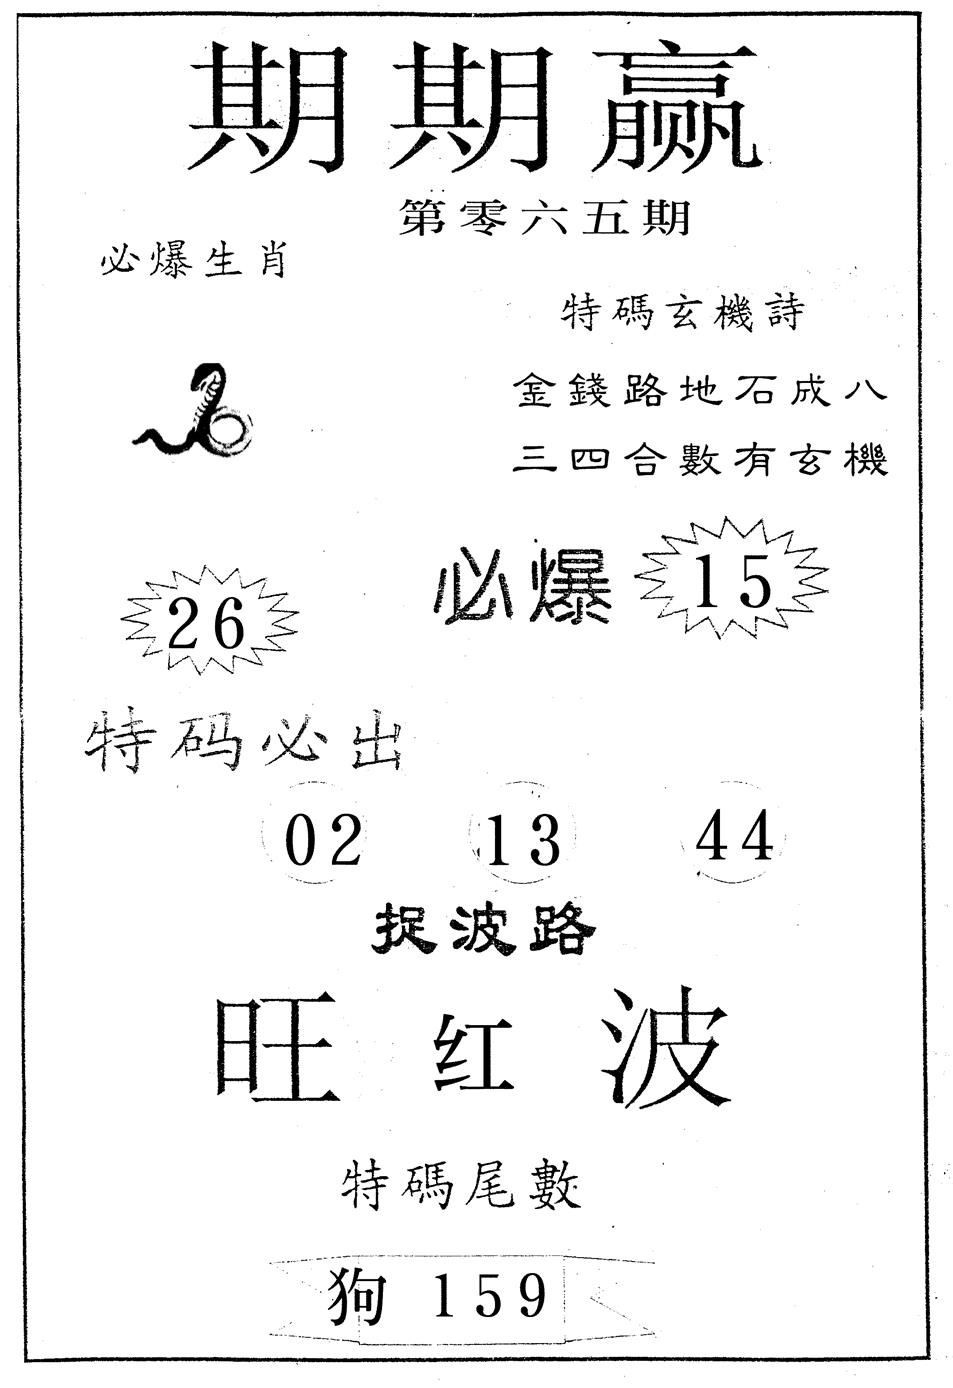 期期赢
第零六五期
必爆生肖
特碼玄機詩
金錢路地石成八
三四合數有玄機
必爆 15
26
特码必出
02 13 44
捉波路
旺红波
特碼尾數
狗 159